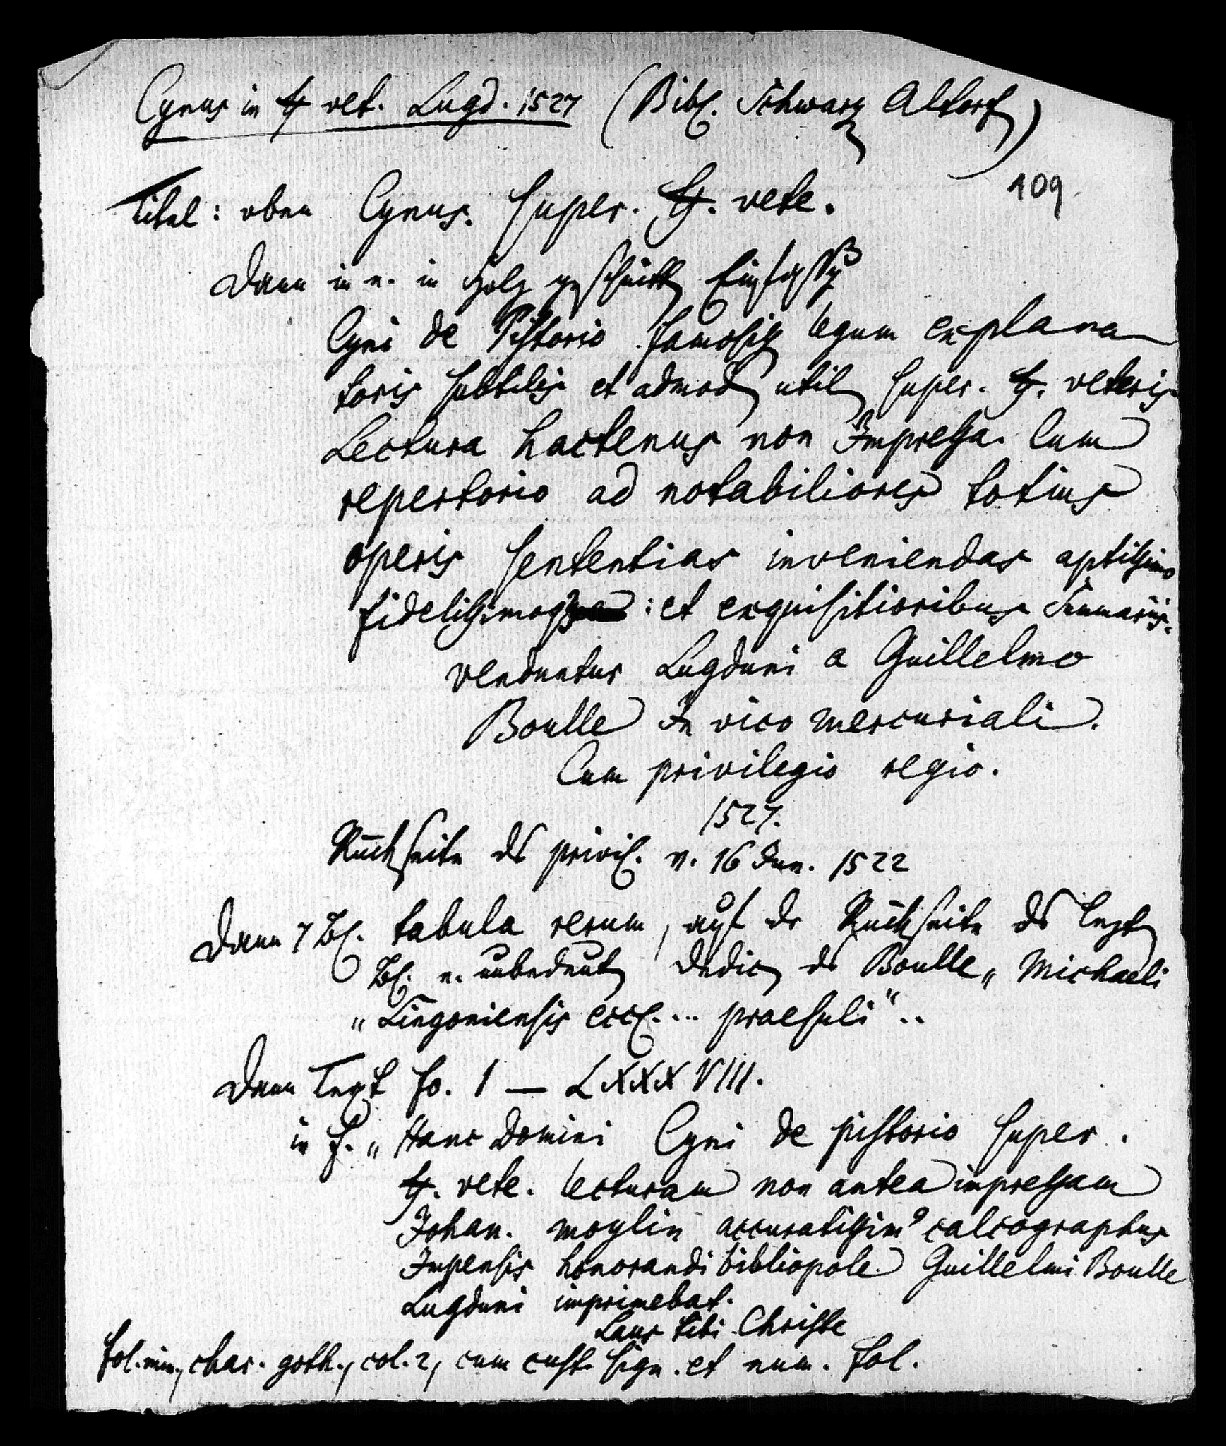 Cynus in ff vet. Lugd. 1527 (Bibl. Schwarz Altorf)
109
Titel: oben Cynus. super. ff. vete.
Dann in e. in Holz geschnitt Einfassg
Cyni de Pistorio famosiss legum explana
toris subtilis et admod util super. ff. veteris
Lectura hactenus non Impressa. Cum
repertorio ad notabiliores totius
operis sententias inveniendas aptissimo
fidelissimoq : et exquisitioribus Summariis.
venduntur Lugduni a Guillelmo
Boulle In vico mercuriali.
Cum privilegio regio.
1527.
Rückseite ds privil. v. 16 Jun. 1522
Dann 7 Bl. tabula rerum, auf dr Rückseite ds lezt
Bl. e. unbedeut Dedic ds Boulle „ Michaeli
„ Lingoniensis eccl. ... praesuli" ..
Dann Text fo. 1 — LXXXVIII.
in f. „ Hanc Domini Cyni de pistorio super.
ff. vete. lecturam non antea impressam
Johan. moylin accuratissim⁹ calcographus
Impensis honorandi bibliopole Guillelmi Boulle
Lugduni imprimebat.
Laus tibi Christe
fol. min, char. goth., col. 2, cum cust. sign. et num. fol.